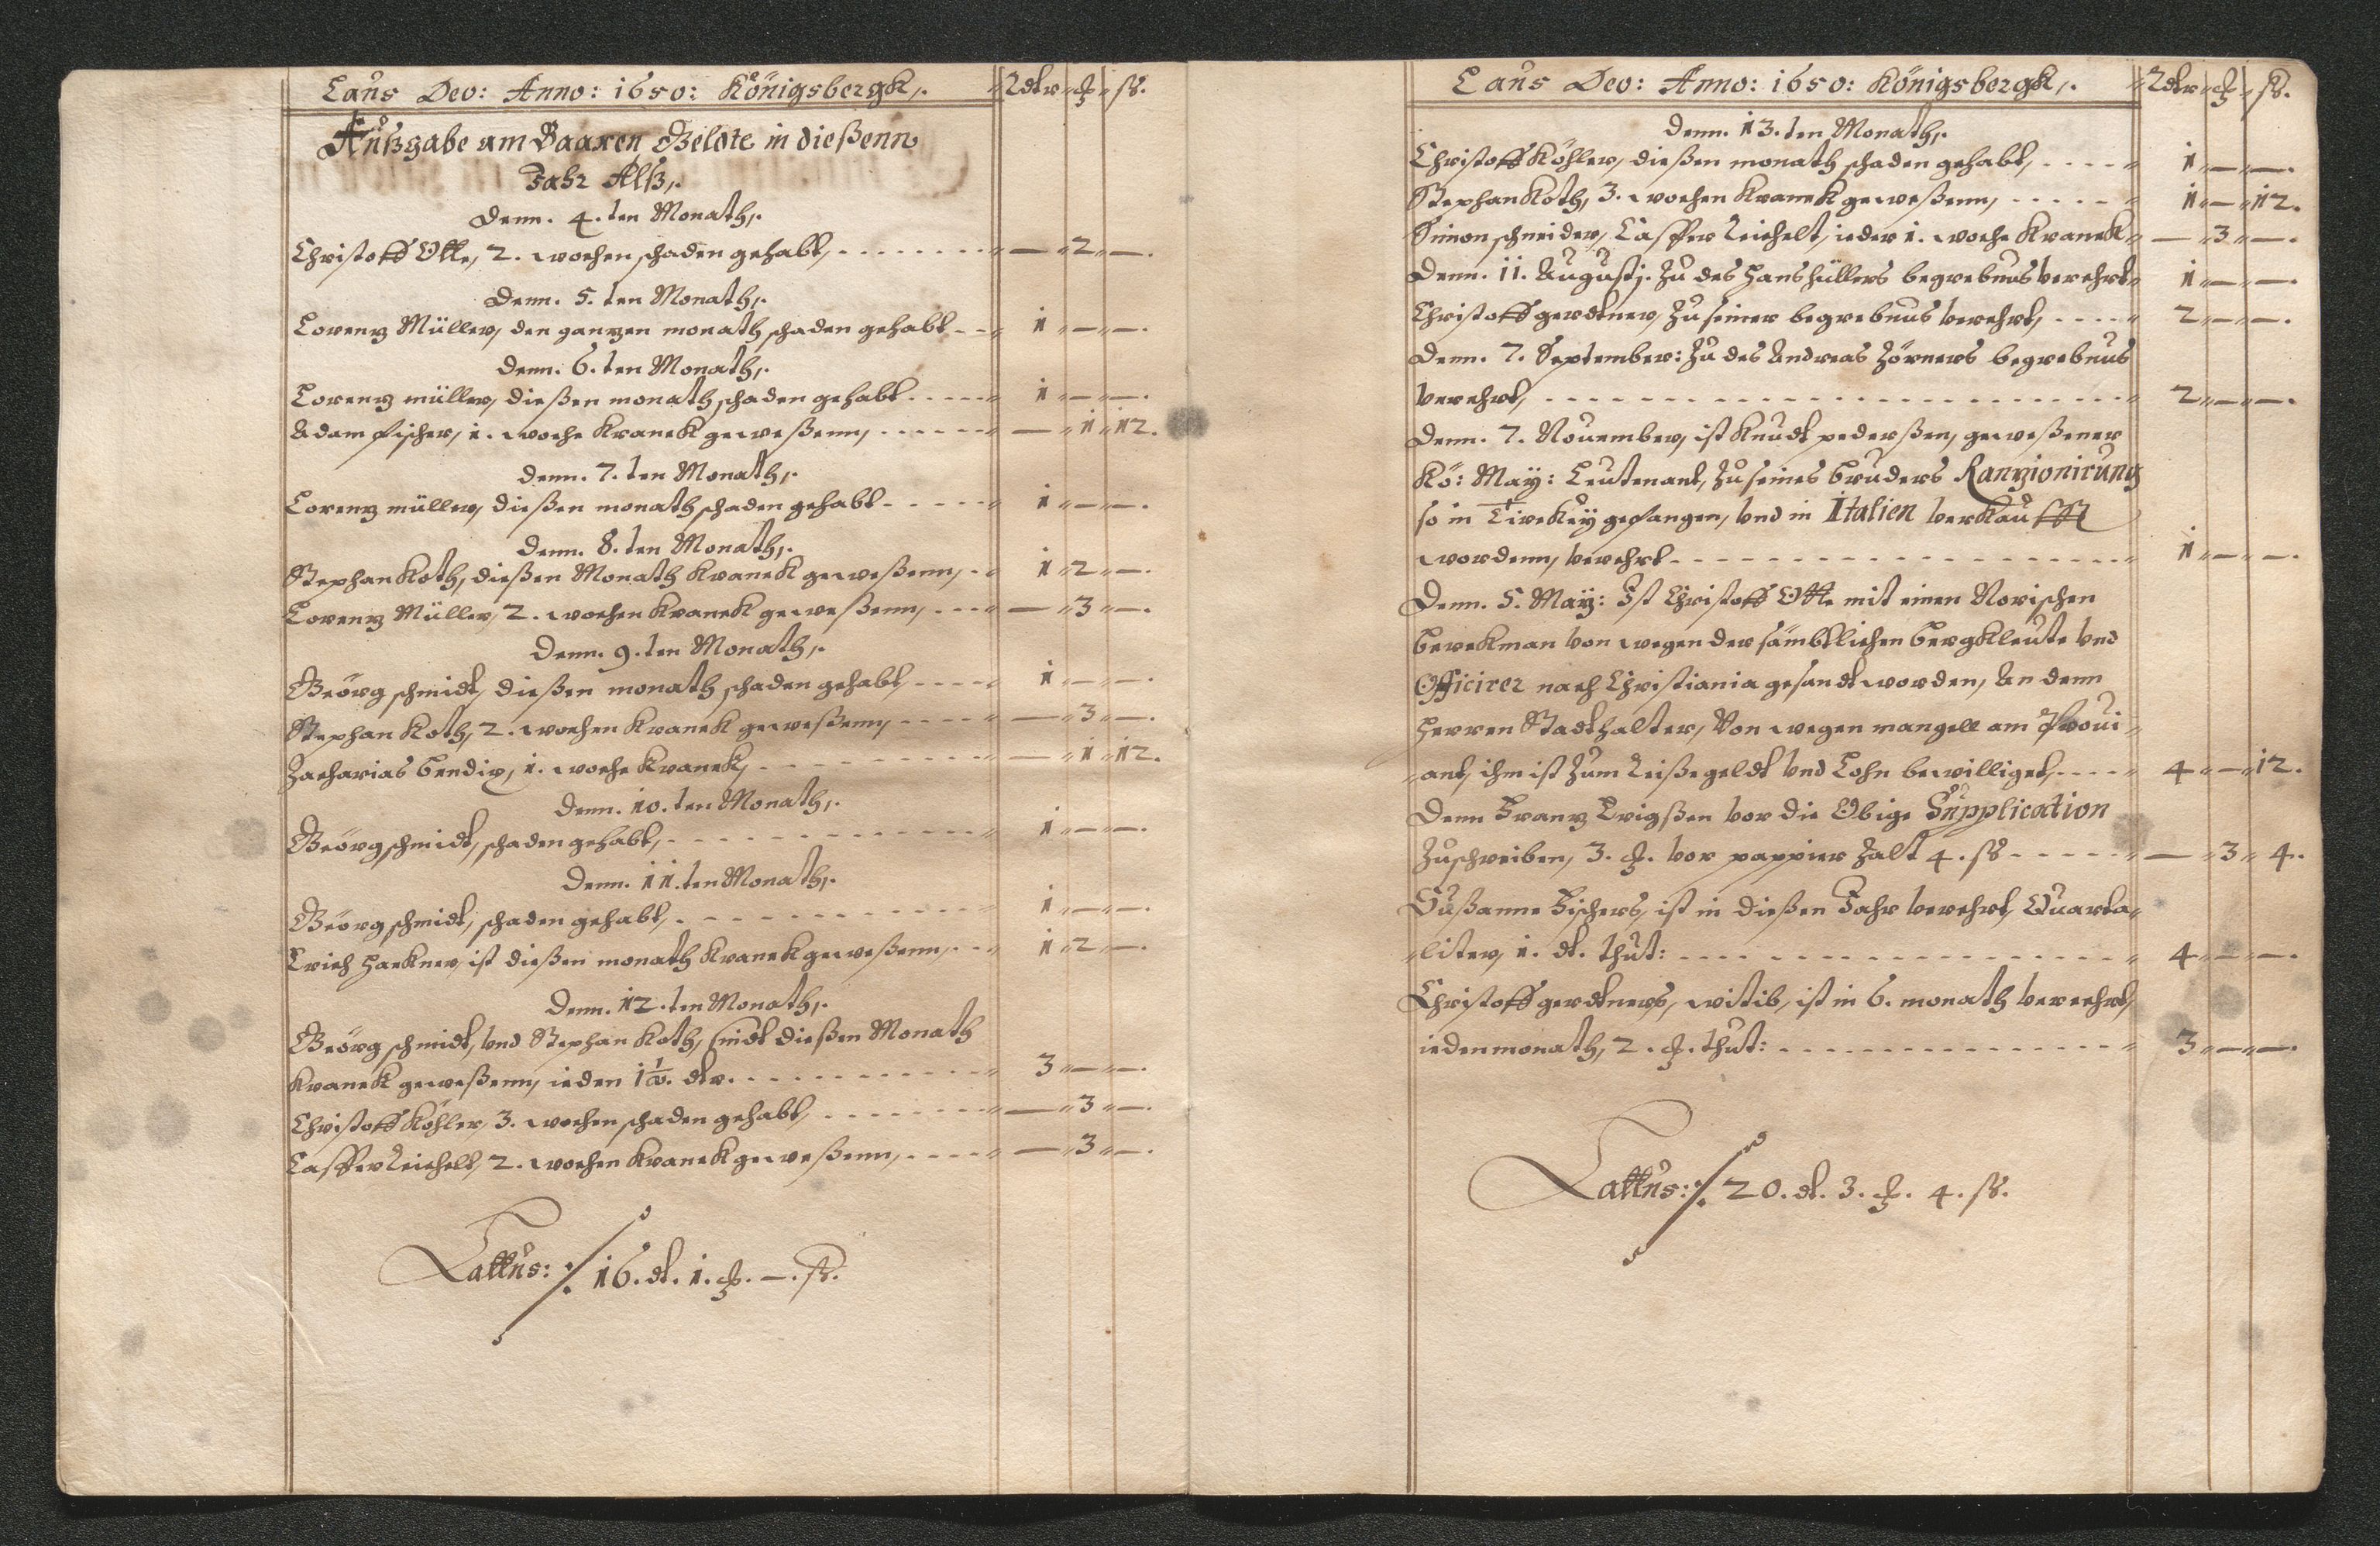 Laus Deo: Anno: 1650: Königsbergk,. Rdlr ß.
Außgabe am Baaren Geldte in dießenn
Jahr Alß,.
Denn. 4. ten Monath,.
Christoff Otte, 2. wochen schaden gehabt, — 2 —.
Denn. 5. ten Monath,.
Lorenz Müller, den ganzen monath schaden gehabt 1 — —.
Denn. 6. ten Monath,.
Lorenz müller, dießen monath schaden gehabt 1 — —.
Adam fischer, 1. woche Kranck geweßenn, — 1 12.
Denn. 7. ten Monath,.
Lorenz müller, dießen monath schaden gehabt 1 — —.
Denn. 8. ten Monath,.
Stephan Koth, dießen Monath Kranck geweßenn, 1 2 —.
Lorenz Müller, 2. wochen Kranck geweßenn, — 3 —.
Denn. 9. ten Monath,.
Geörg schmidt, dießen monath schaden gehabt, 1 — —.
Stephan Koth, 2. wochen Kranck geweßenn, — 3 —.
Zacharias Bendix, 1. woche Kranck, — 1 12.
Denn. 10. ten Monath,.
Geörg schmidt, schaden gehabt, 1 — —.
Denn. 11. ten Monath,.
Geörg schmidt, schaden gehabt, 1 — —.
Erich Hackner, ist dießen monath Kranck geweßenn, 1 2 —.
Denn. 12. ten Monath,.
Geörg schmidt, vnd Stephan Koth, sindt dießen Monath
Kranck geweßenn, ieden 1½. dlr. 3 — —.
Christoff Köhler, 3. wochen schaden gehabt, — 3 —.
Casper Reichelt, 2. wochen Kranck geweßenn, — 3 —.
Lattus: 16. dl. 1. —. ß.
Laus Deo: Anno: 1650: Königsbergk,. Rdlr ß.
Denn. 13. ten Monath,.
Christoff Köhler, dießen monath schaden gehabt, 1 — —.
Stephan Koth, 3. wochen Kranck geweßenn, 1 — 12.
Simon schneider, Casper Reichelt, ieder 1. woche Kranck — 3 —.
Denn. 11. Augustj. Zu des Hans hüllers begrebnus verehrt 1 — —.
Christoff gerdtner, Zu seiner begrebnus verehrt, 2 — —.
Denn. 7. September: Zu des Andreas Zörners begrebnus
verehrt, 2 — —.
Denn. 7. Nouember, ist Knudt pederßen, geweßener
Kö: May: Leutenant, Zu seines Bruders Ranzionirung
so in Tirckey gefangen, vnd in Italien verkaufft
wordenn, verehrt 1 — —.
Denn. 5. May: Ist Christoff Otte mit einen Norischen
Berckman von wegen der sämbtlichen Bergkleute vnd
Officirer nach Christiania gesandt worden, An denn
Herren Stadthalter, Von wegen mangell am Proui-
ant, ihm ist Zum Reißegeldt vnd Lohn bewilliget, 4 — 12.
Denn Franz Erigßen vor die Obige Supplication
Zuschreiben, 3. vor pappier Zalt 4. ß — 3 4.
Sußanne Fischers, ist in dießen Jahr verehrt, Quarta-
liter, 1. dl. thut: 4 — —.
Christoff gerdtners, witib, ist in 6. monath verehrt,
ieden monath, 2. thut: 3 — —.
Lattus: 20. dl. 3. 4. ß.